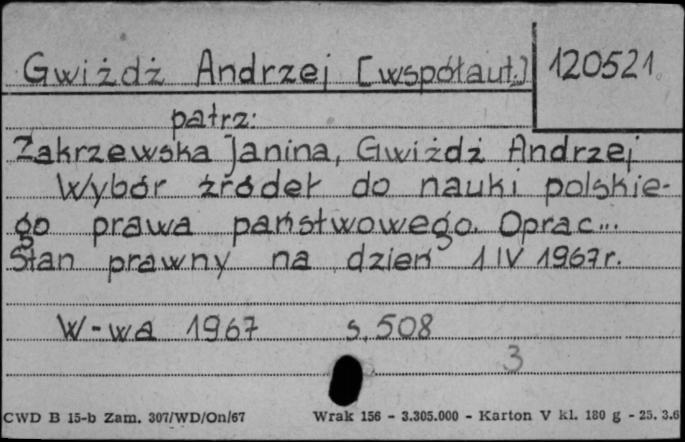 Gwiżdż Andrzej [współaut.] 120521
patrz:
Zakrzewska Janina, Gwiżdż Andrzej
Wybór źródeł do nauki polskie-
go prawa państwowego. Oprac...
Stan prawny na dzień 1 IV 1967 r.
W-wa 1967 s. 508
3
CWD B 15-b Zam. 307/WD/On/67 Wrak 156 - 3.305.000 - Karton V kl. 180 g - 25. 3.6